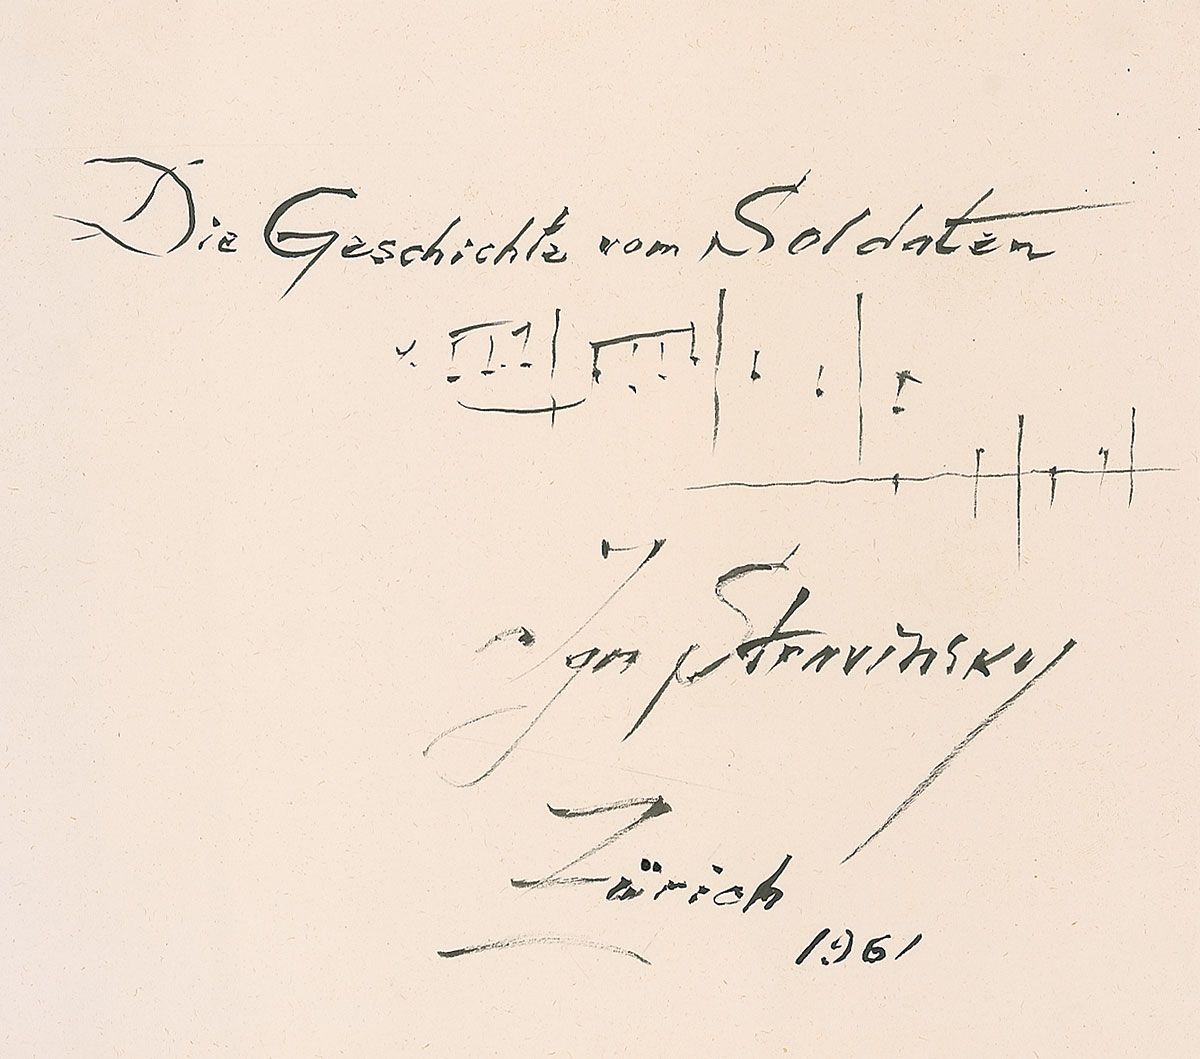 Die Geschichte vom Soldaten
Igor Strawinsky
Zürich
1961